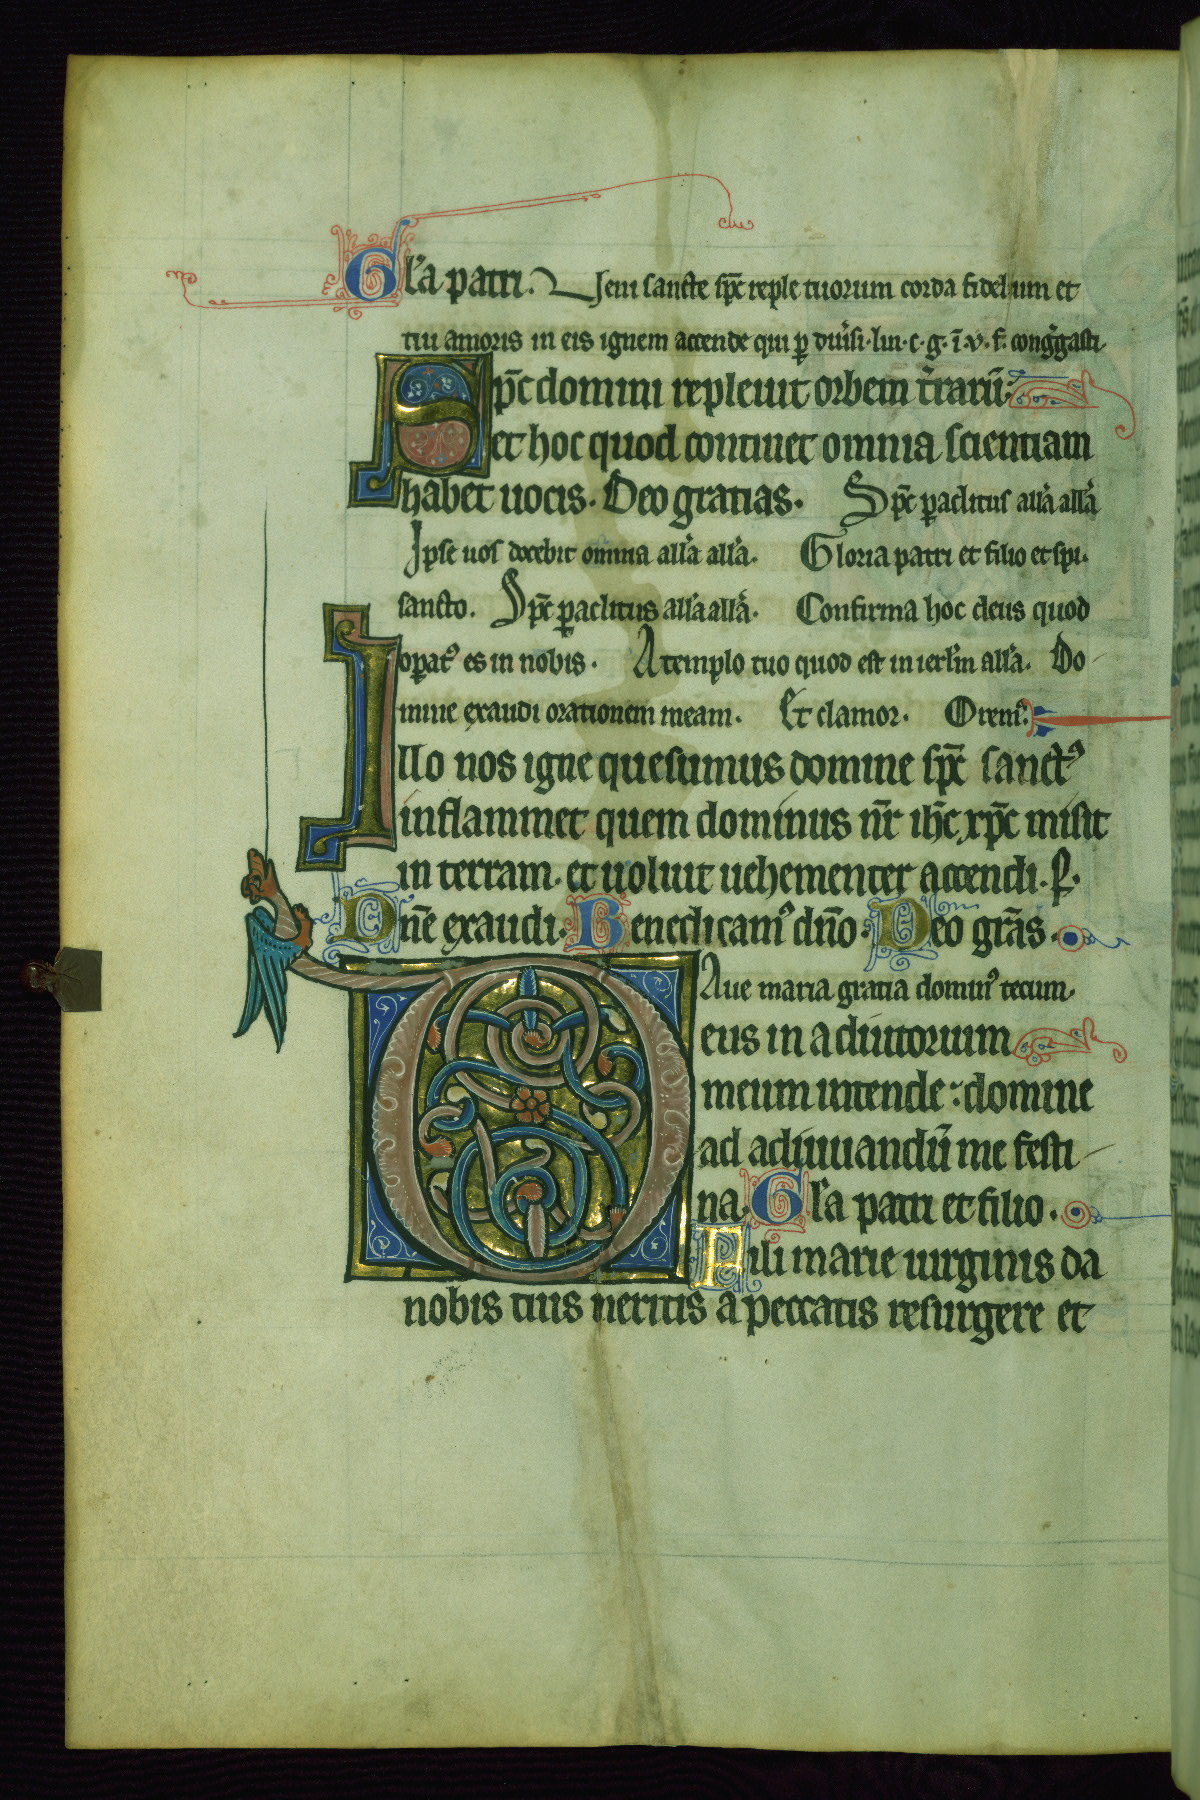 Gl'a patri. Ueni sancte sp̄c reple tuorum corda fidelium et
tui amoris in eis ignem accende qui ꝑ diu'si·lin·c·g·ī·v·f· cong̃gasti
Sp̄c domini repleuit orbem t̃rarū:
et hoc quod continet omnia scientiam
habet uocis. Deo gratias. Sp̄c ꝑaclitus all'a all'a
Ipse uos docebit omnia all'a all'a. Gloria patri et filio et spi.
sancto. Sp̄c ꝑaclitus all'a all'a. Confirma hoc deus quod
oꝑatꝰ es in nobis. A templo tuo quod est in ierl'm all'a. Do
mine exaudi orationem meam. Et clamor. Oremꝰ.
Illo nos igne quesumus domine sp̄c sanctꝰ
inflammet quem dominus nr̄ ih̄c xp̄c misit
in terram. et uoluit uehementer accendi. P.
Dn̄e exaudi. Benedicamꝰ dño. Deo grãs.
Aue maria gratia dominꝰ tecum.
Deus in adiutorium
meum intende: domine
ad adiuuandū me festi
na. Gl'a patri et filio.
Fili marie uirginis da
nobis tuis meritis a peccatis resurgere et